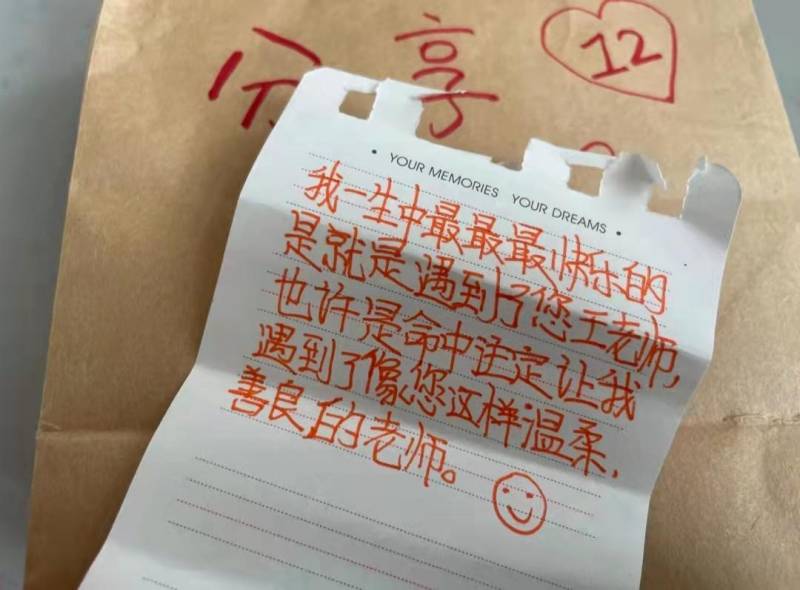 分享
12
YOUR MEMORIES YOUR DREAMS
我一生中最最最快乐的
是就是遇到了您王老师,
也许是命中注定让我
遇到了像您这样温柔、
善良的老师。